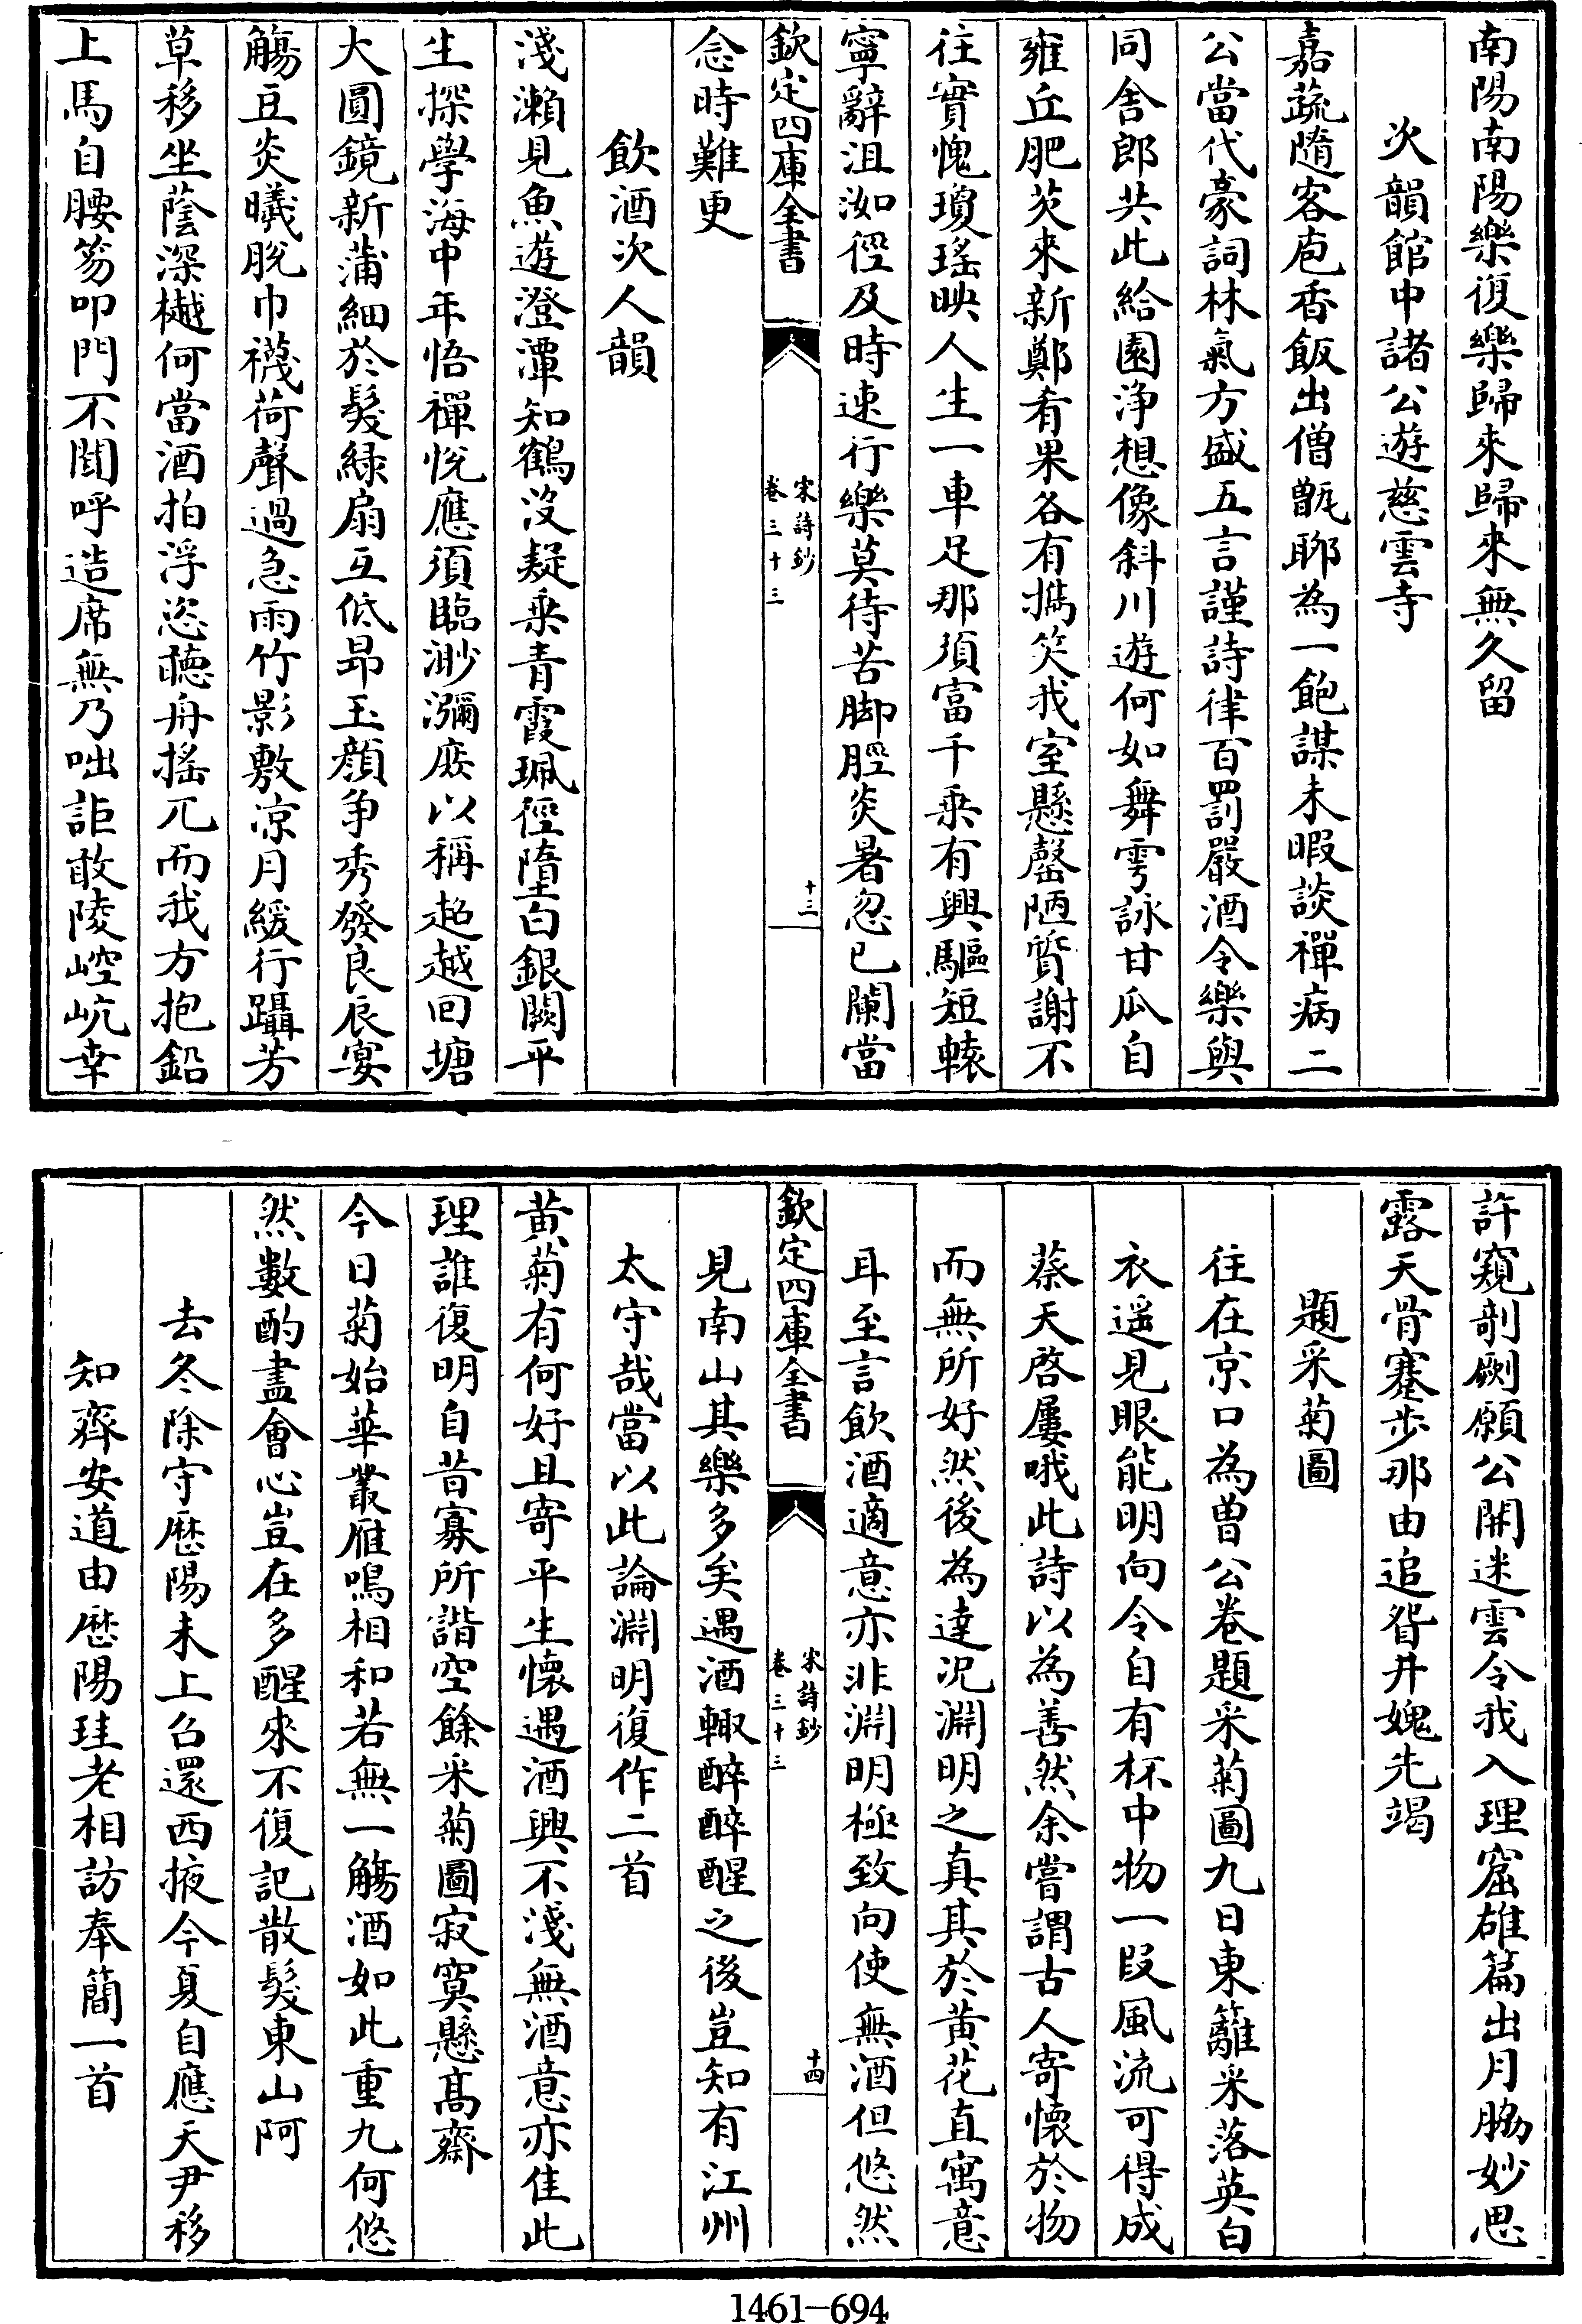 南陽南陽樂復樂歸來歸來無久留
次韻館中諸公遊慈雲寺
嘉蔬隨客庖香飯出僧甑聊為一飽謀未暇談禪病二
公當代豪詞林氣方盛五言謹詩律百罰嚴酒令樂與
同舍郎共此給園淨想像斜川遊何如舞雩詠甘瓜自
雍丘肥芡來新鄭肴果各有攜笑我室懸罄陋質謝不
往實愧瓊瑤映人生一車足那須富千乘有興驅短轅
寧辭沮洳徑及時速行樂莫待苦脚脛炎暑忽已闌當
欽定四庫全書
宋詩鈔
卷三十三
十三
念時難更
飲酒次人韻
淺瀨見魚遊澄潭知鶴沒疑乘青霞珮徑墮白銀闕平
生探學海中年悟禪悅應須臨渺瀰庶以稱超越回塘
大圓鏡新蒲細於髮綠扇互低昂玉顏争秀發良辰宴
觴豆炎曦脫巾襪荷聲過急雨竹影敷凉月緩行躡芳
草移坐蔭深樾何當酒拍浮恣聽舟搖兀而我方抱鉛
上馬自腰笏叩門不聞呼造席無乃咄詎敢陵崆㟁幸
許窺剞劂願公開迷雲令我入理窟雄篇出月脇妙思
露天骨蹇步那由追眢井媿先竭
題采菊圖
往在京口為曾公卷題采菊圖九日東籬采落英白
衣遥見眼能明向令自有杯中物一段風流可得成
蔡天啓屢哦此詩以為善然余嘗謂古人寄懷於物
而無所好然後為達况淵明之真其於黄花直寓意
耳至言飲酒適意亦非淵明極致向使無酒但悠然
欽定四庫全書
宋詩鈔
卷三十三
十四
見南山其樂多矣遇酒輒醉醉醒之後豈知有江州
太守哉當以此論淵明復作二首
黄菊有何好且寄平生懷遇酒興不淺無酒意亦佳此
理誰復明自昔寡所諧空餘采菊圖寂寞懸高齋
今日菊始華叢雁鳴相和若無一觴酒如此重九何悠
然數酌盡會心豈在多醒來不復記散髮東山阿
去冬除守厯陽未上召還西掖今夏自應天尹移
知齊安道由厯陽珪老相訪奉簡一首
1461—694